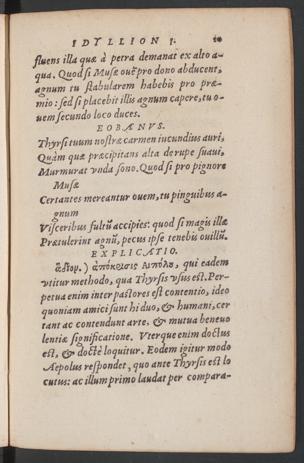 IDYLLION I.
fluens illa quæ à petra demanat ex alto a-
qua. Quod si Musæ ouē pro dono abducent,
agnum tu stabularem habebis pro præ-
mio: sed si placebit illis agnum capere, tu o-
uem secundo loco duces.
EOBANVS.
Thyrsi tuum nostræ carmen iucundius auri,
Quàm quæ præcipitans alta de rupe suaui,
Murmurat vnda sono. Quod si pro pignore
Musæ
Certantes mereantur ouem, tu pinguibus a-
gnum
Visceribus fultū accipies: quod si magis illæ
Prætulerint agnū, pecus ipse tenebis ouillū.
EXPLICATIO.
ἅδιον.) ἀπόκρισις αἰπόλου, qui eadem
vtitur methodo, qua Thyrsis vsus est. Per-
petua enim inter pastores est contentio, ideo
quoniam amici sunt hi duo, & humani, cer
tant ac contendunt arte, & mutua beneuo
lentiæ significatione. Vterque enim doctus
est, & doctè loquitur. Eodem igitur modo
Aepolus respondet, quo ante Thyrsis est lo
cutus: ac illum primo laudat per compara-